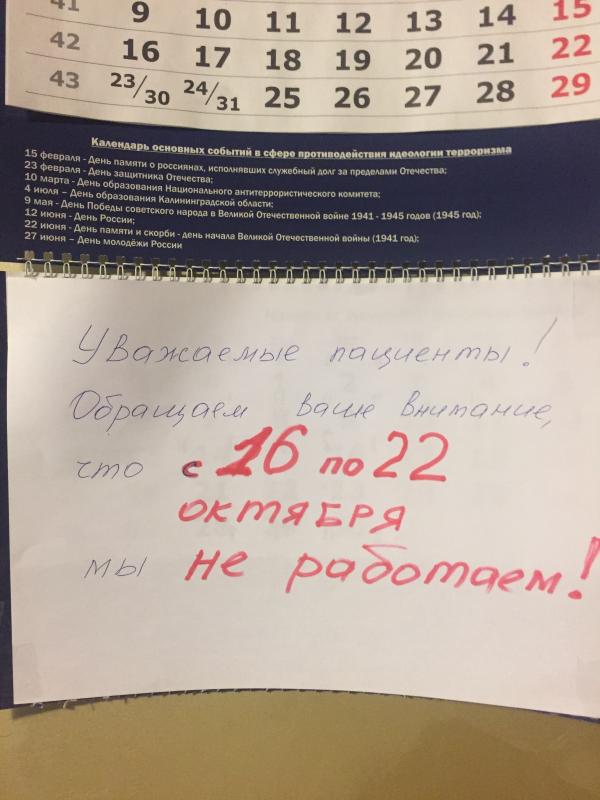 41 9 10 11 12 13 14 15
42 16 17 18 19 20 21 22
43 23/30 24/31 25 26 27 28 29
Календарь основных событий в сфере противодействия идеологии терроризма
15 февраля - День памяти о россиянах, исполнявших служебный долг за пределами Отечества;
23 февраля - День защитника Отечества;
10 марта - День образования Национального антитеррористического комитета;
4 июля – День образования Калининградской области;
9 мая - День Победы советского народа в Великой Отечественной войне 1941 - 1945 годов (1945 год);
12 июня - День России;
22 июня - День памяти и скорби - день начала Великой Отечественной войны (1941 год);
27 июня – День молодёжи России
Уважаемые пациенты!
Обращаем ваше внимание,
что с 16 по 22
октября
мы не работаем!